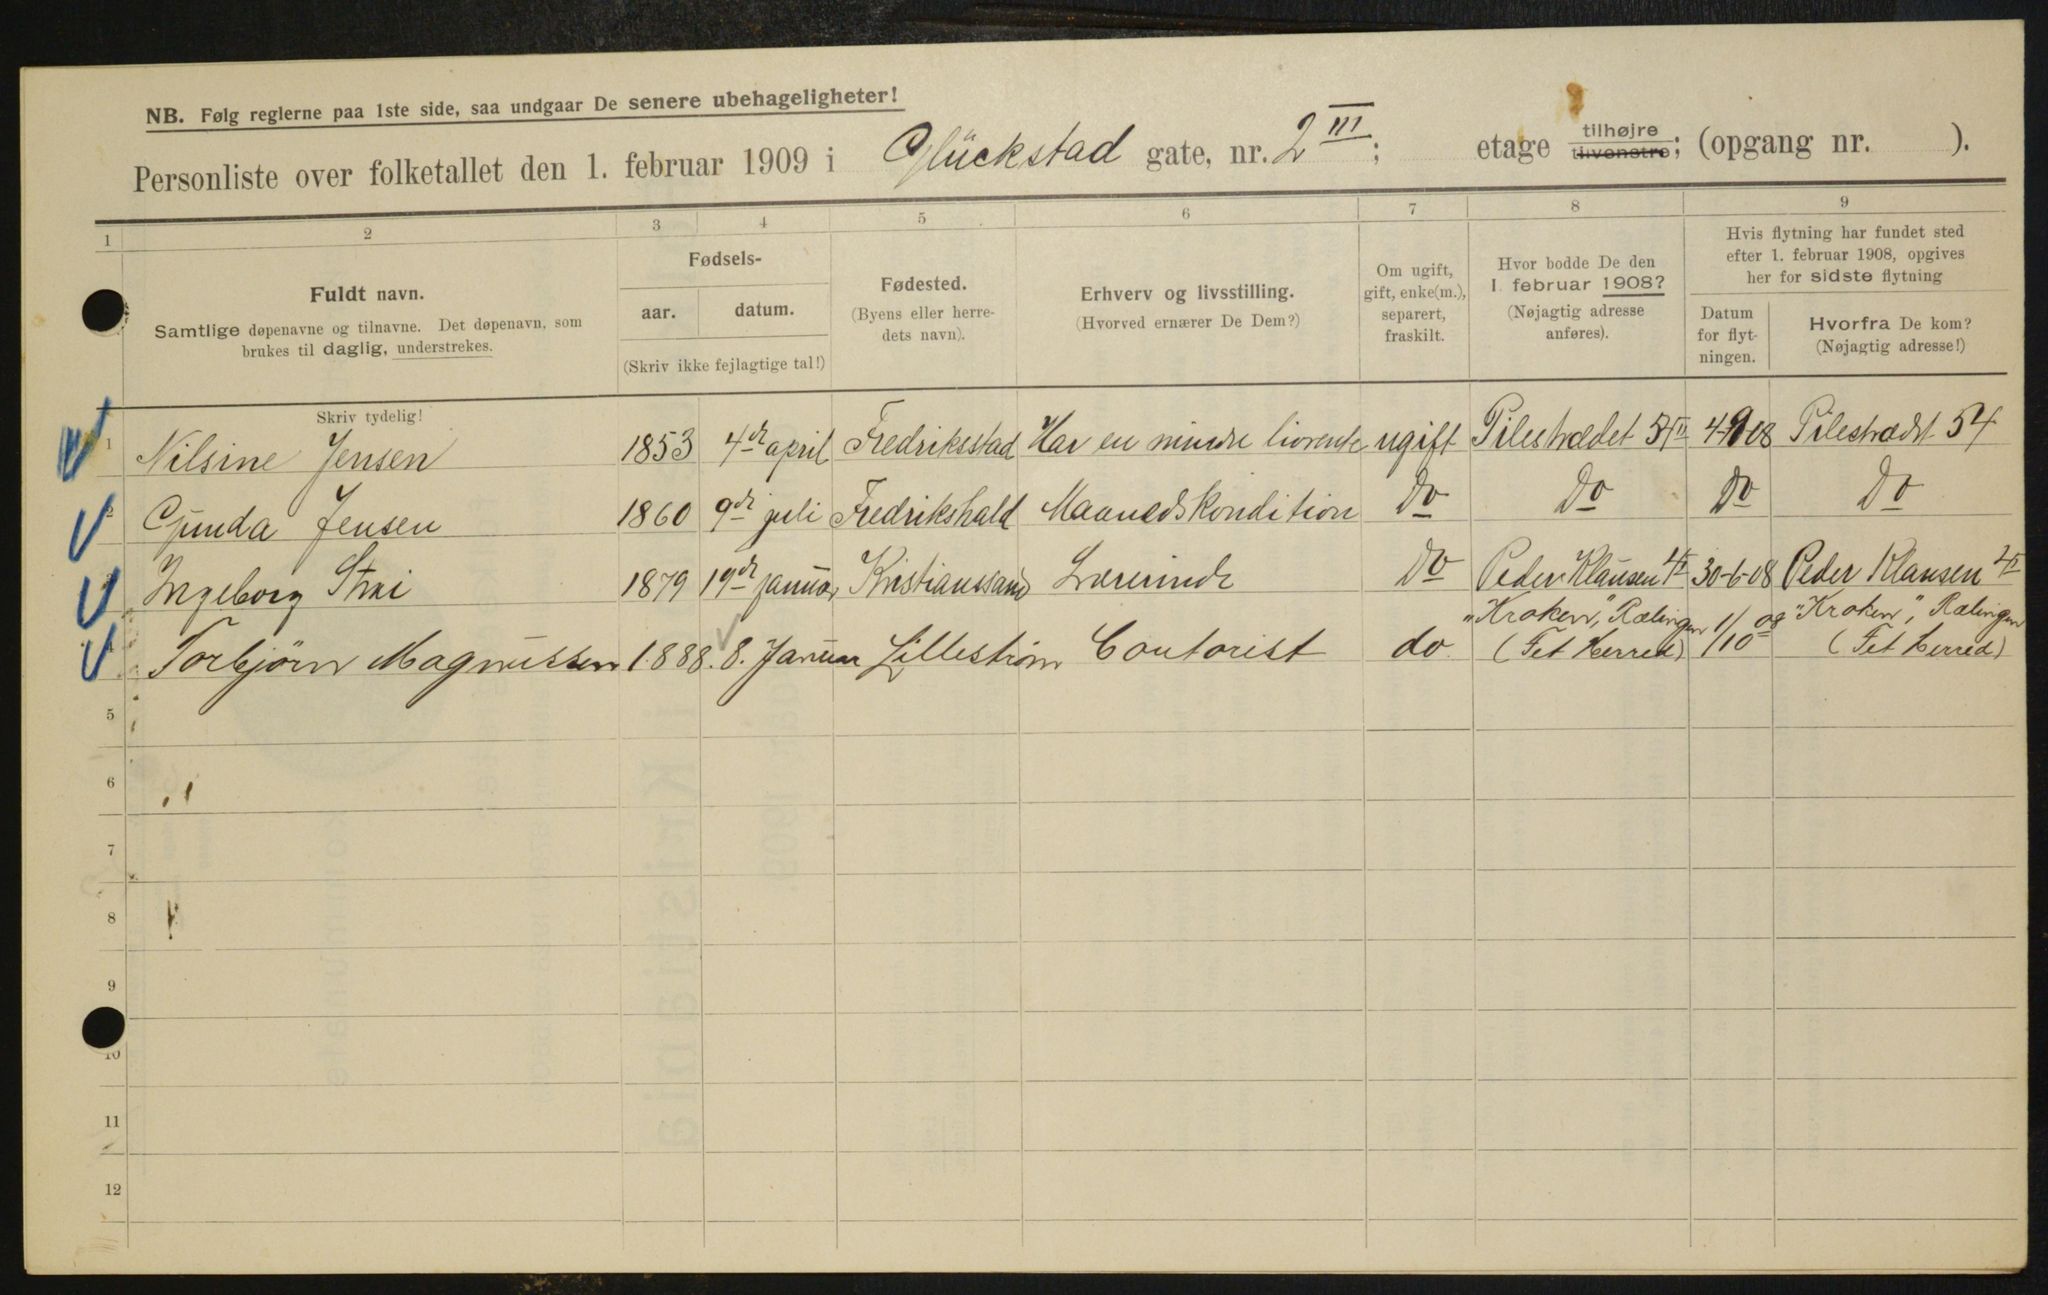 NB. Følg reglerne paa 1ste side, saa undgaar De senere ubehageligheter!
Personliste over folketallet den 1. februar 1909 i Glückstad gate, nr. 2 III; etage tilhøjre tilvenstre; (opgang nr. ).
1 2 3 4 5 6 7 8 9
Fuldt navn.
Samtlige døpenavne og tilnavne. Det døpenavn, som
brukes til daglig, understrekes.
Fødsels-
aar. datum.
(Skriv ikke fejlagtige tal!)
Fødested.
(Byens eller herre-
dets navn).
Erhverv og livsstilling.
(Hvorved ernærer De Dem?)
Om ugift,
gift, enke(m.),
separert,
fraskilt.
Hvor bodde De den
1. februar 1908?
(Nøjagtig adresse
anføres).
Hvis flytning har fundet sted
efter 1. februar 1908, opgives
her for sidste flytning
Datum
for flyt-
ningen.
Hvorfra De kom?
(Nøjagtig adresse!)
Skriv tydelig!
1 Nilsine Jensen 1853 4de april Fredriksstad Har en mindre livrente ugift Pilestrædet 4-9-08 Pilestrædt 54
2 Gunda Jensen 1860 9de juli Fredrikshald Maanedskondition Do Do Do Do
3 Ingeborg Strai 1879 19de januar Kristianssand Lærerinde Do Peder Klausen 30-6-08 Peder Klausen
"Kroken", Rælingen "Kroken", Rælingen
Torbjörn Magnussen 1888. 8. Januar Lillestrøm Contorist do (Fet Herred) 1/10 08 (Fet herred)
5
6
7
8
9
10
11
12